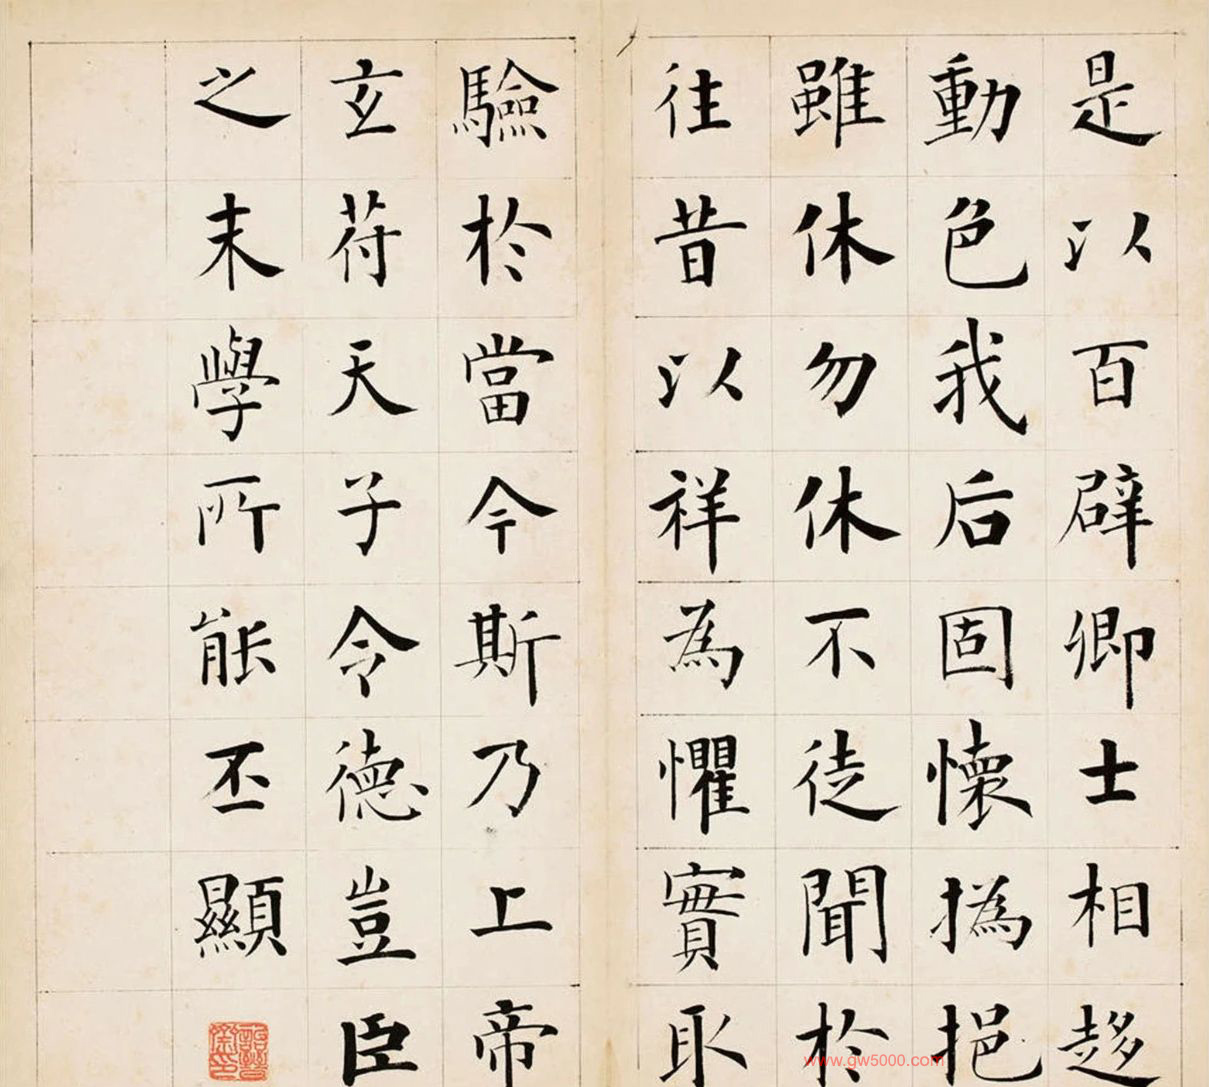 是以百辟卿士相趍
動色我后固懷撝挹
雖休勿休不徒聞於
往昔以祥為懼實取
驗於當今斯乃上帝
玄符天子令德豈臣
之末學所能丕顯
www.gw5000.com